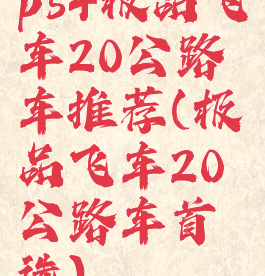 ps4极品飞
车20公路
车推荐(极
品飞车20
公路车首
选)